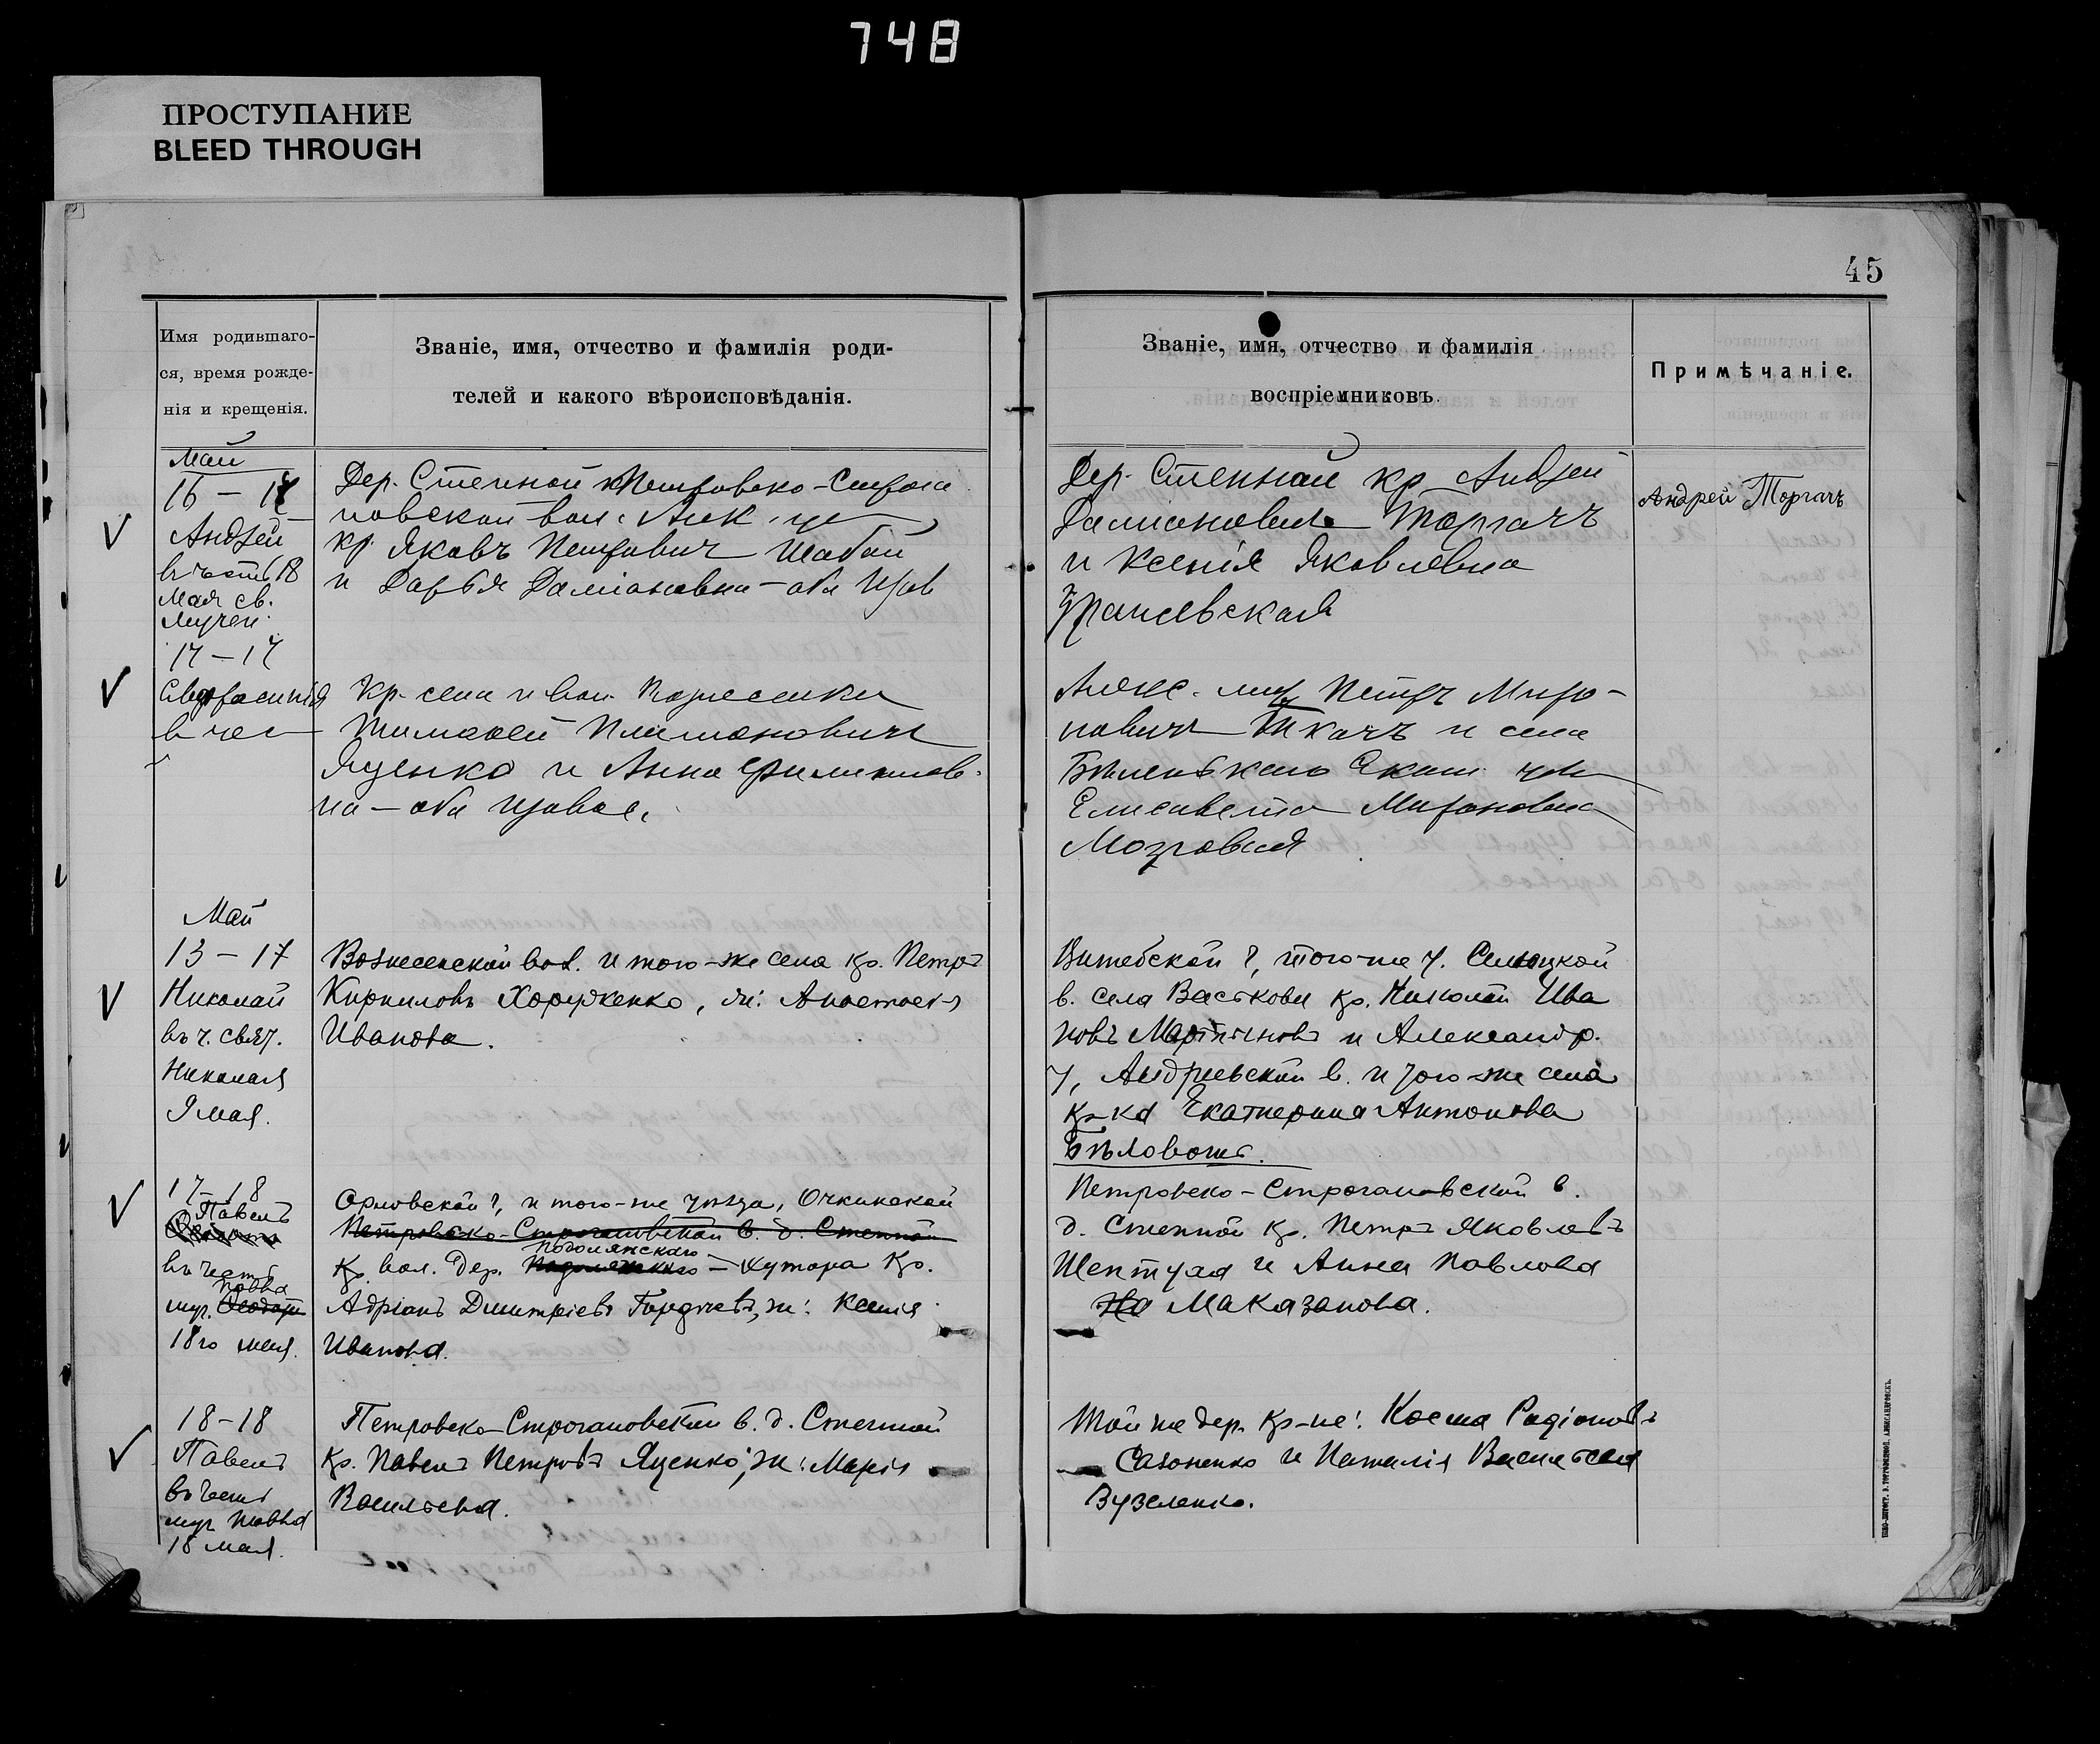 748
ПРОСТУПАНИЕ
BLEED THROUGH
45
Имя родившаго-
ся, время рожде-
нія и крещенія.
Званіе, имя, отчество и фамилія роди-
телей и какого вѣроисповѣданія.
Званіе, имя, отчество и фамилія
воспріемниковъ.
Примѣчаніе.
Май
16 —
Андрей
въ честь 18
Мая св.
мучен.
Дер. Степной Петровско-Строга
новской вол. Алек. у
кр. Яковъ Петрович Шабай
и Дарья Даміановна — оба прав
Дер. Степной кр. Андрей
Даміанович Торгачъ
и Ксенія Яковлевна
Андрей Торгачъ
17 — 17
в чес
Кр. села и вол.
Тимофей
Яценко и Анна Филиппов
на — оба правос.
Алекс. Петръ Миро-
новичъ Ткачъ и села
Бѣленькаго Екат.
Елисавета Мироновна
Май
13 — 17
Николай
въ ч. свят.
Николая
9 мая.
Вознесенской вол. и того-же села кр. Петръ
Кирилловъ Хорунженко, ж: Анастасія
Иванова.
Витебской г, того-же у.
в. села Васькова кр. Николай Ива
новъ и Александр.
у, Андреевской в. и того-же села
кр-ка Екатерина Антонова
17-18
Павелъ
въ честь
Павла
муч.
18го мая.
Орловской г, и того-же уѣзда, Очкинской
Петровско-Строгановской в. д. Степной
Кр. вол. Дер. — хутора Кр.
Адріанъ Дмитріевъ ж: Ксенія
Иванова.
Петровско-Строгановской в.
д. Степной кр. Петръ Яковлевъ
и Анна Павлова
Маказанова.
18-18
Павелъ
въ честь
муч Павла
18 мая.
Петровско-Строгановской в. д. Степной
Кр. Павелъ Петровъ Яценко, ж: Марія
Васильева.
Той же дер. Кр-не: Косма Родіоновъ
Сазоненко и Наталія Васильева